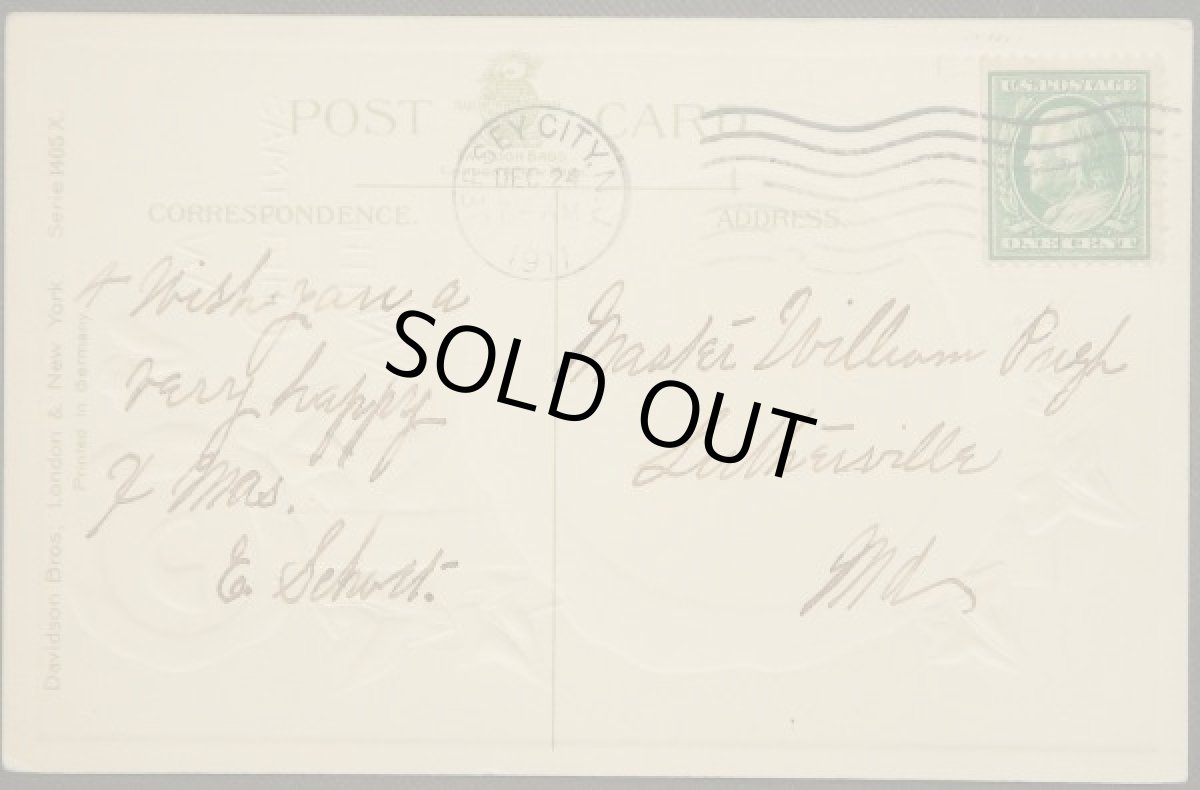 POST CARD
JERSEY CITY, N.J.
DEC 24
1911
U.S. POSTAGE
ONE CENT
CORRESPONDENCE.
ADDRESS.
Wish you a
very happy
X Mas.
E. Schott.
SOLD OUT
Master William Pugh
Lutherville
Md
Davidson Bros. London & New York Serie 1405 X.
Printed in Germany